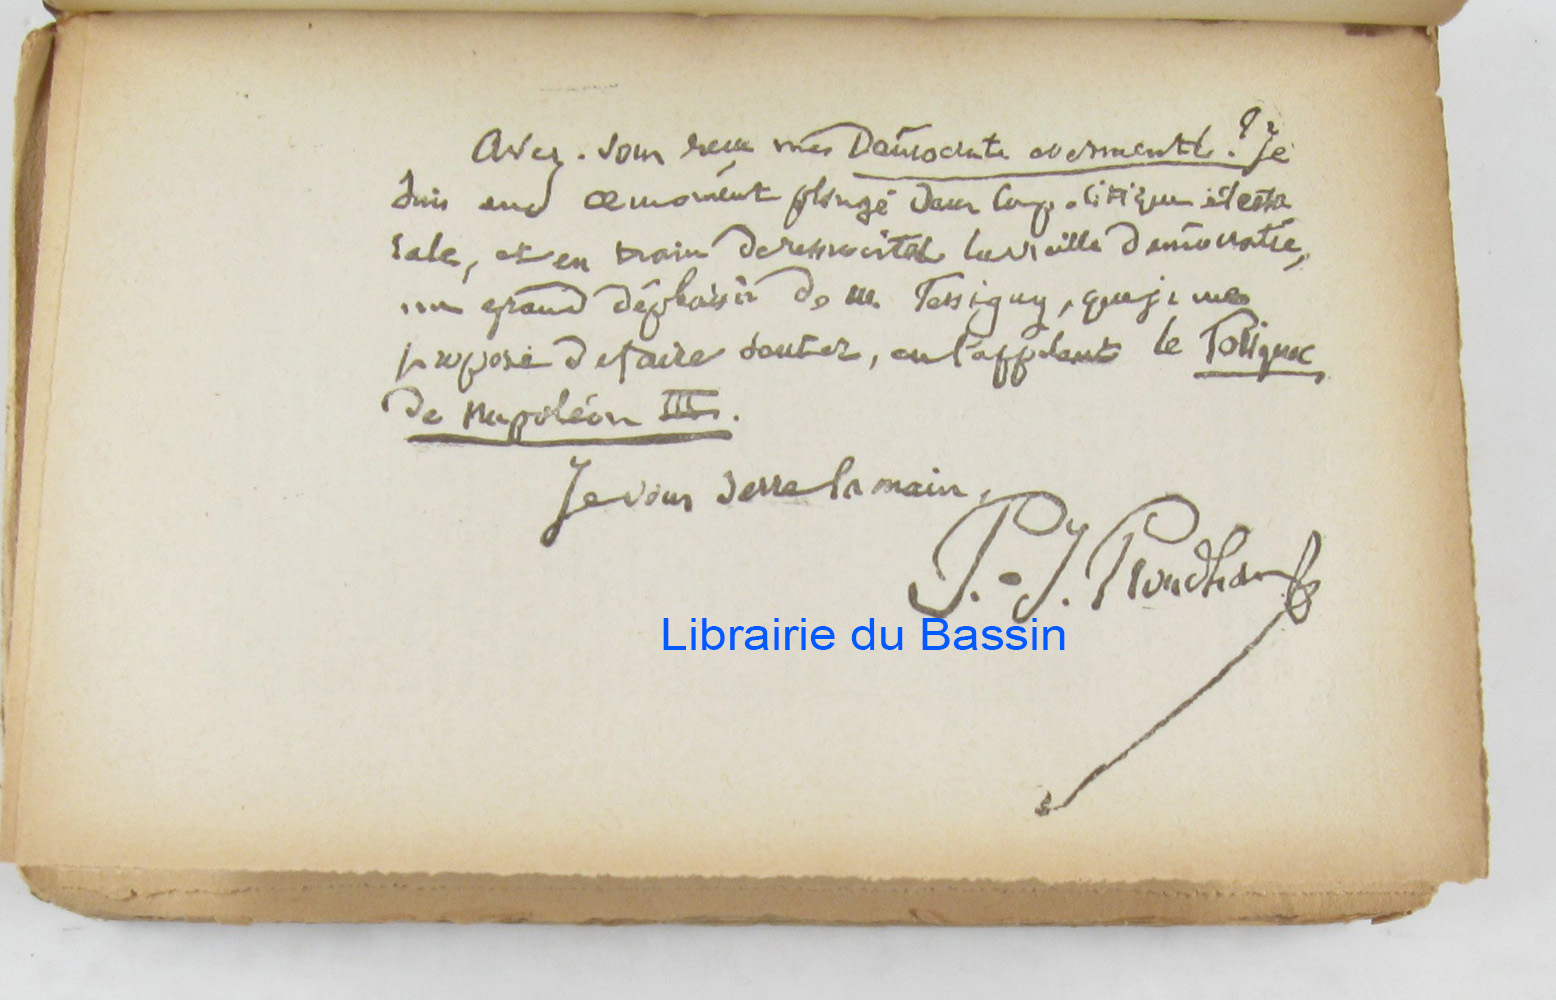 Avez-vous reçu mes Démocrates assermentés ? Je
suis en ce moment plongé dans la politique
sale, et en train de ressusciter la vieille Démocratie,
au grand déplaisir de M. Persigny, que je me
propose de faire sauter, en l'appelant le Polignac
de Napoléon III.
Je vous serre la main,
P.-J. Proudhon
Librairie du Bassin